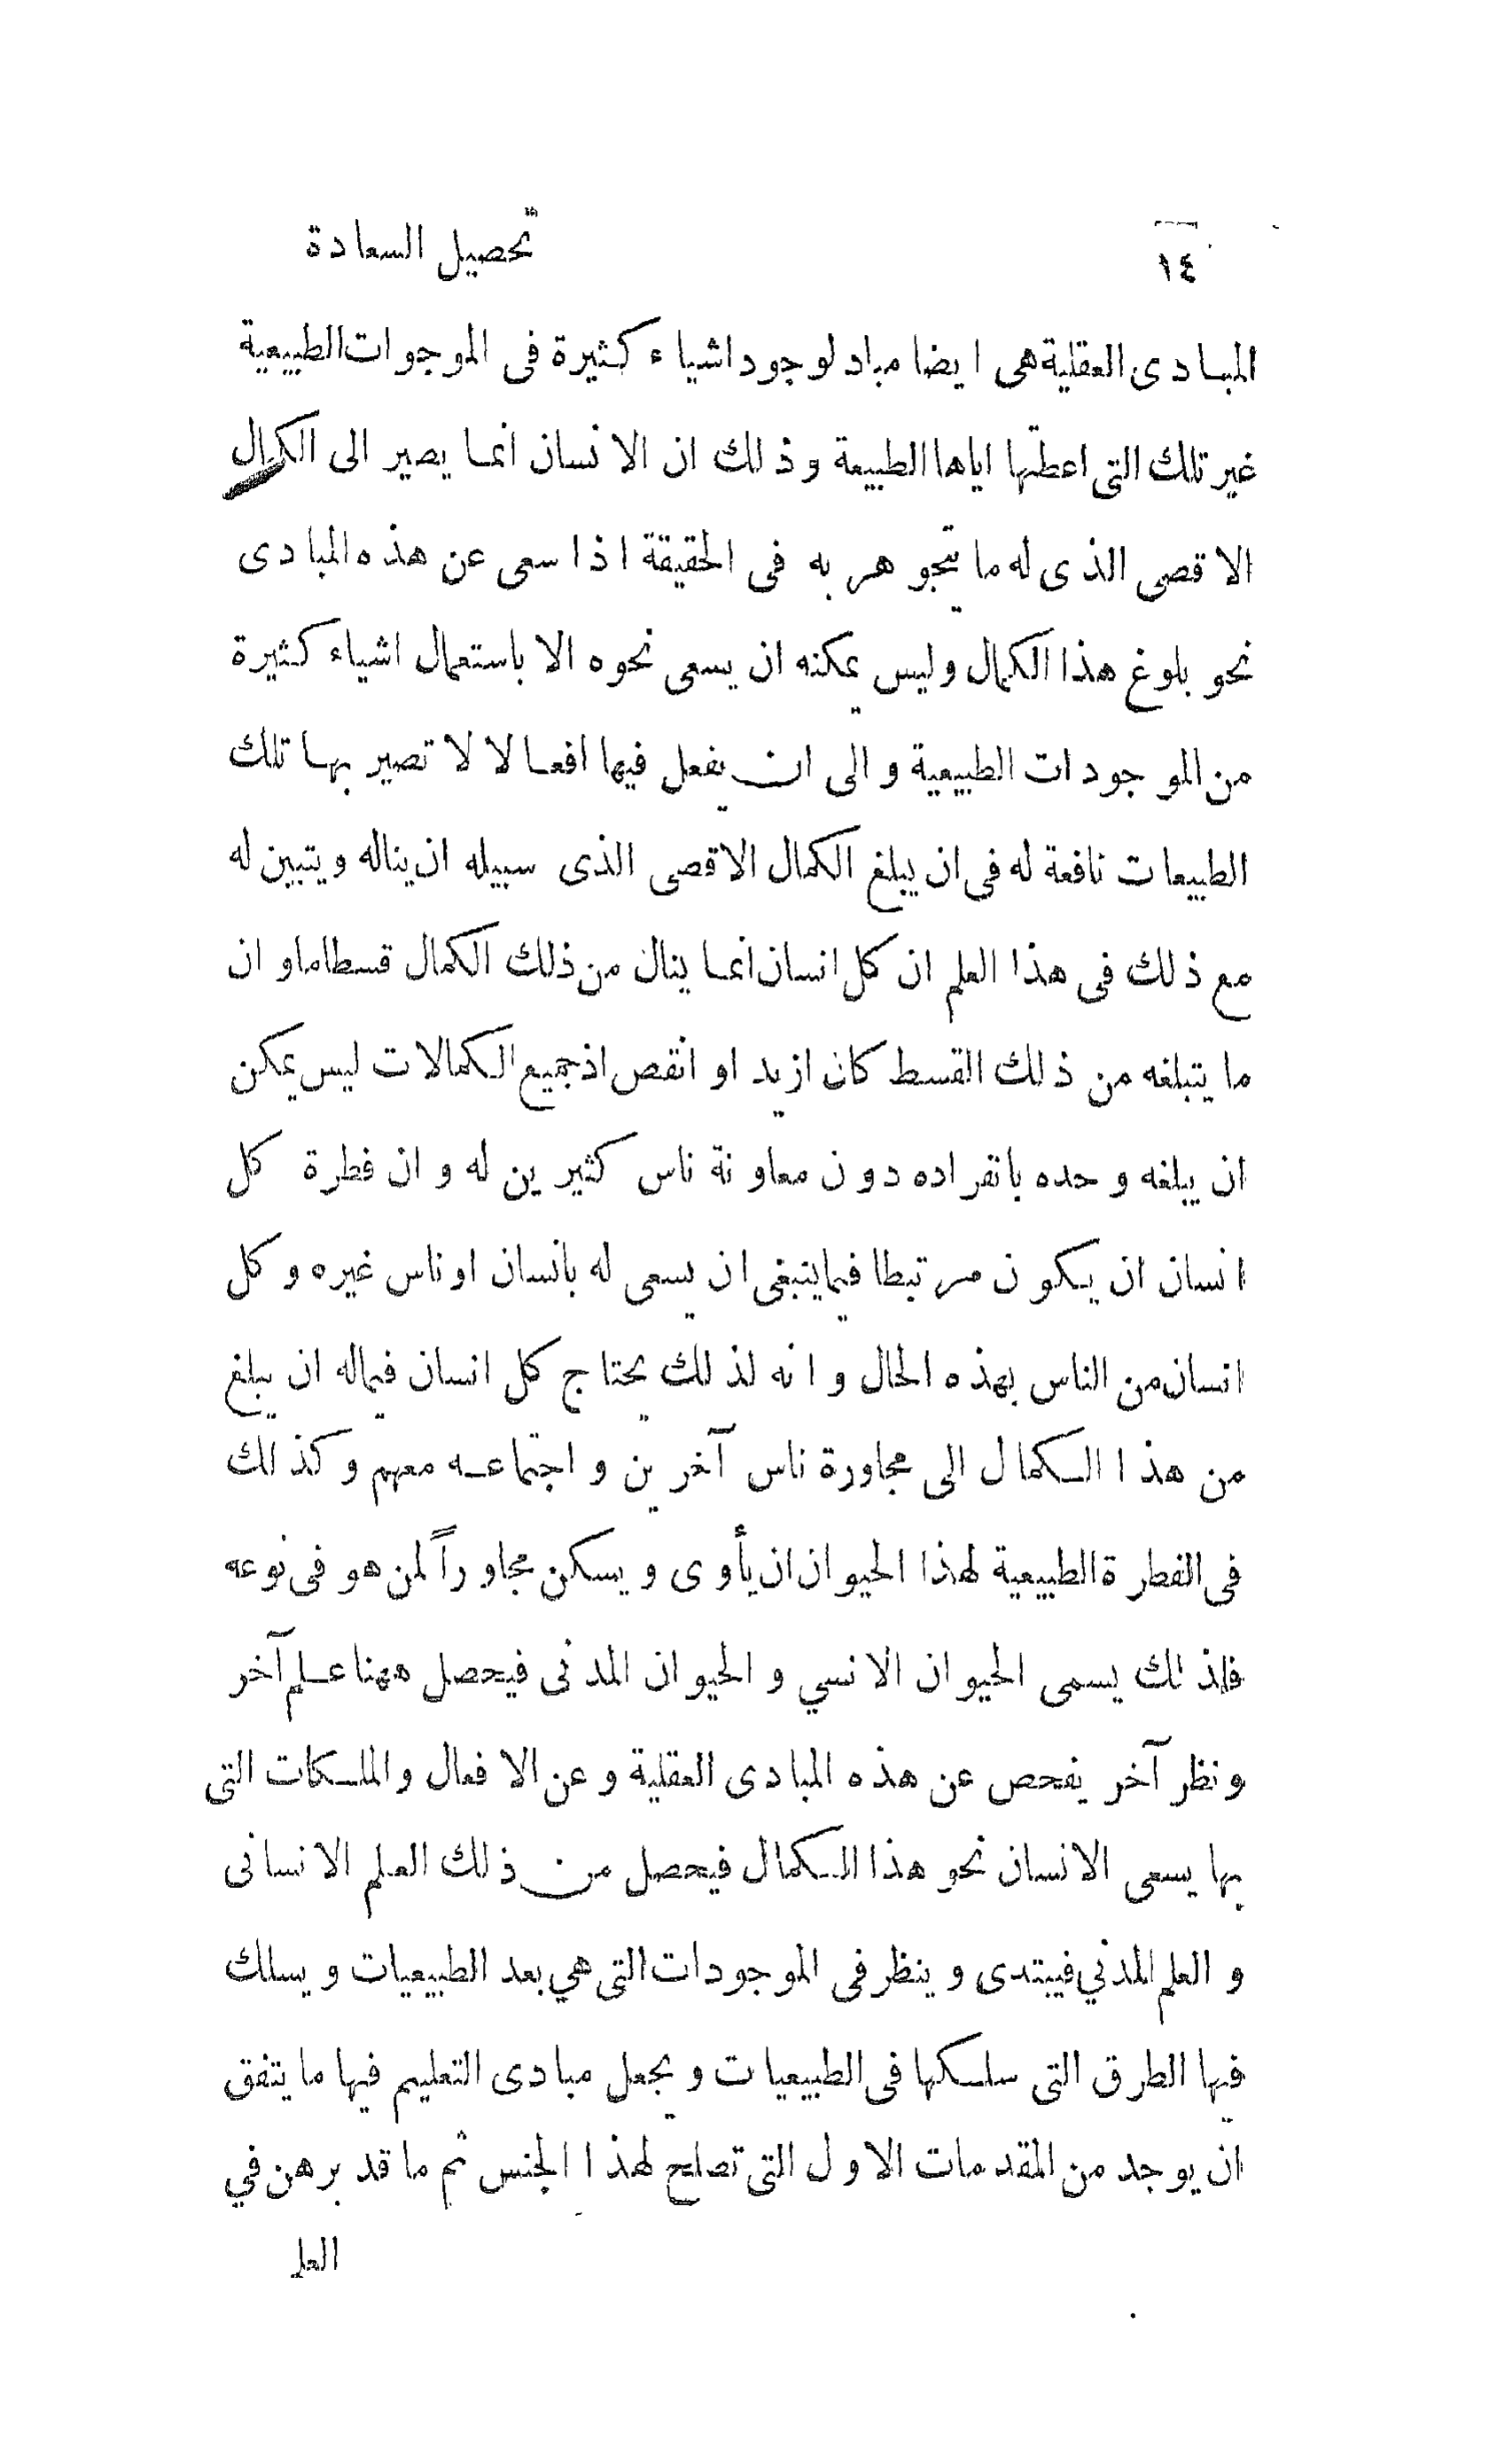 ١٤
تحصيل السعادة
المبادى العقلية هى ايضا مباد لوجود اشياء كثيرة فى الموجوات الطبيعية
غير تلك التى اعطتها اياها الطبيعة وذلك ان الانسان انما يصير الى الكمال
الاقصى الذى له ما يتجوهر به فى الحقيقة اذا سعى عن هذه المبادى
نحو بلوغ هذا الكمال وليس يمكنه ان يسعى نحوه الا باستعمال اشياء كثيرة
من الموجودات الطبيعية والى ان يفعل فيها افعالا لا تصير بها تلك
الطبيعات نافعة له فى ان يبلغ الكمال الاقصى الذى سبيله ان يناله ويتبين له
مع ذلك فى هذا العلم ان كل انسان انما ينال من ذلك الكمال قسطاما وان
ما يتبلغه من ذلك القسط كان ازيد او انقص اذ جميع الكمالات ليس يمكن
ان يبلغه وحده بانفراده دون معاونة ناس كثيرين له وان فطرة كل
انسان ان يكون مرتبطا فيما ينبغى ان يسعى له بانسان او ناس غيره وكل
انسان من الناس بهذه الحال وانه لذلك يحتاج كل انسان فيماله ان يبلغ
من هذا الكمال الى مجاورة ناس آخرين واجتماعه معهم وكذلك
فى الفطرة الطبيعية لهذا الحيوان ان يأوى ويسكن مجاوراً لمن هو فى نوعه
فلذلك يسمى الحيوان الانسي والحيوان المدنى فيحصل ههنا علم آخر
ونظر آخر يفحص عن هذه المبادى العقلية وعن الافعال والملكات التى
بها يسعى الانسان نحو هذا الكمال فيحصل من ذلك العلم الانسانى
والعلم المدني فيبتدى وينظر فى الموجودات التى هي بعد الطبيعيات ويسلك
فيها الطرق التى سلكها فى الطبيعيات ويجعل مبادى التعليم فيها ما يتفق
ان يوجد من المقدمات الاول التى تصلح لهذا الجنس ثم ما قد برهن في
العلم